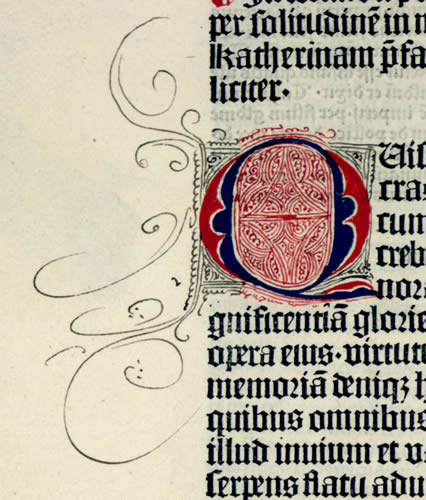 per solitudinē in m
Katherinam p̄fa
liciter·
QUis
cras
cum
creb
nor
gnificentiā glorie
opera eius·virtut
memoriā deniqꝫ h
quibus omnibus
illud inuium et v
serpens flatu adu